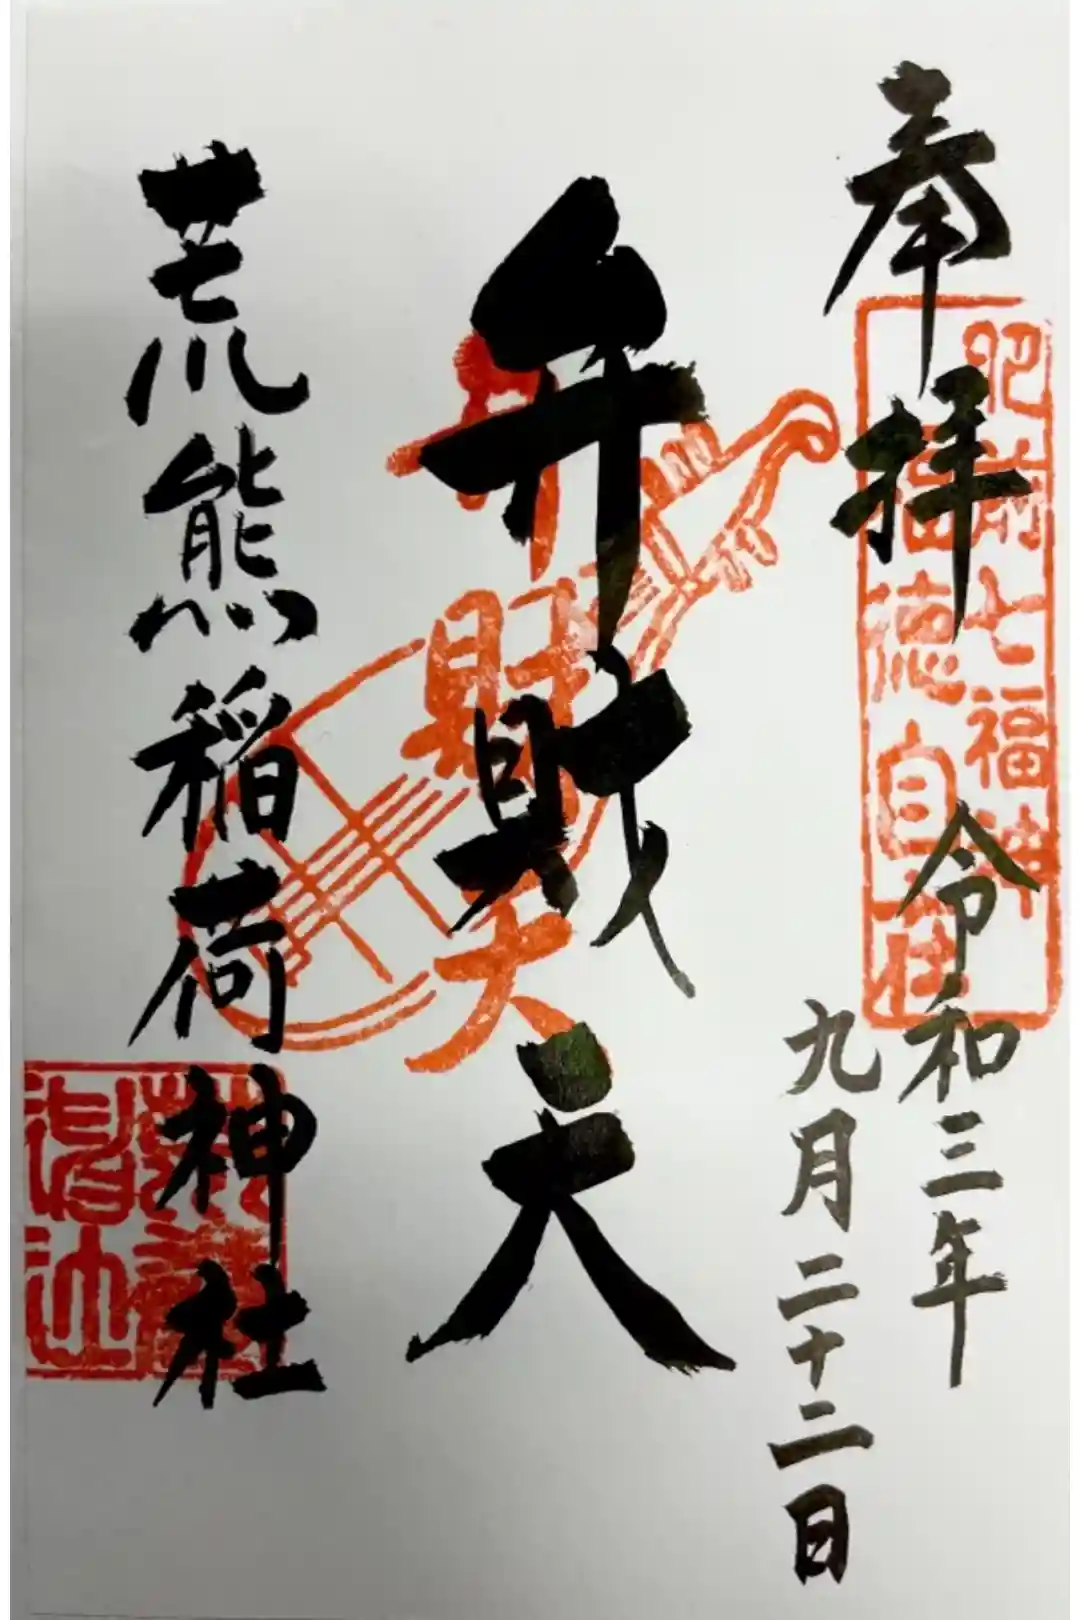 奉拝
肥前七福神
福徳自在
令和三年
九月二十二日
弁財天
財天
荒熊稲荷神社